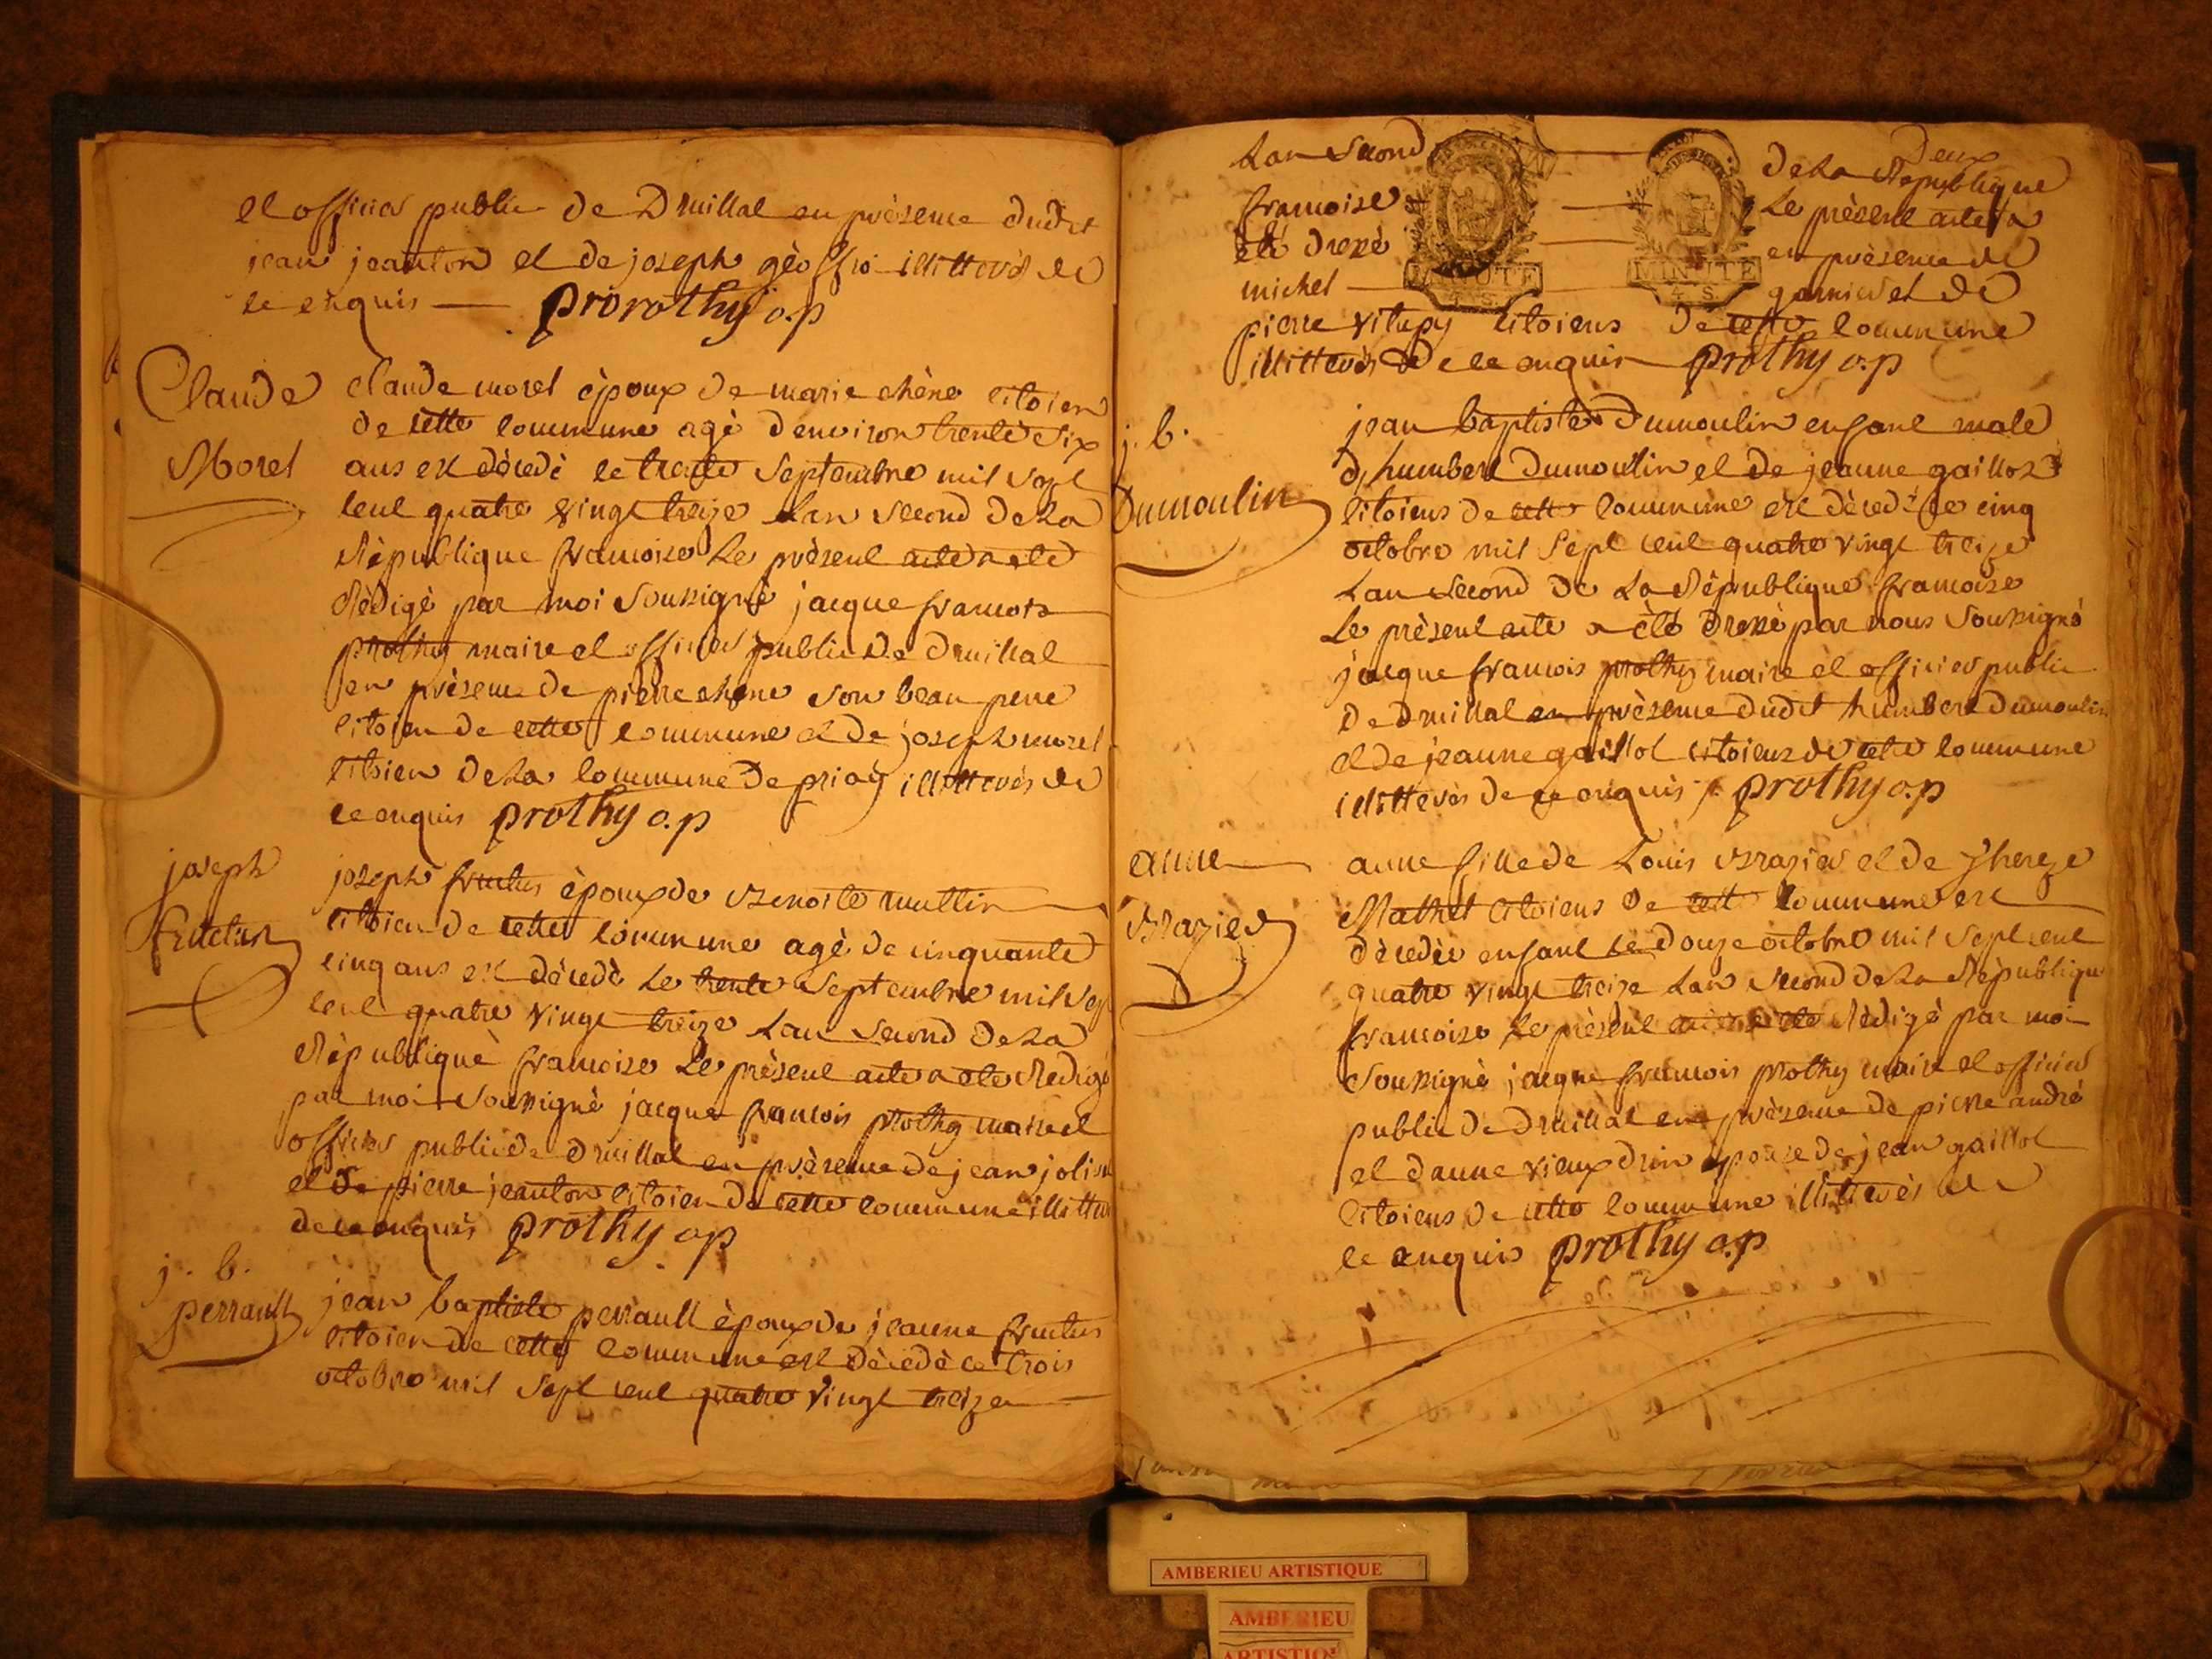 et officier public de Druillat en présence dudit
jean jeanton et de joseph géoffrà illittèrés de
ce enquis — prorothy o.p
Claude
Morel
claude morel époux de marie chêne citoien
de cette commune agé d'environ trente six
ans est décedé le trente septembre mil sept
cent quatre vingt treize Lan second de La
République francoise Le présent acte a eté
Rédigé par moi soussigné jacque francois
prothy maire et officier public de druillat
en présence de pierre chene son beau pere
citoien de cette commune et de joseph morel
citoien de La commune de priay illittérés de
ce enquis prothy o.p
joseph
Fructus
joseph fructus époux de Benoite muttin
citoien de cette commune agé de cinquante
cinq ans est décedé Le trente septembre mil sept
cent quatre vingt treize Lan second de La
République francoise Le présent acte a eté Redigé
par moi soussigné jacque francois prothy maire et
officier public de druillat en présence de jean
et de pierre jeanton citoien de cette commune
de ce enquis prothy o.p
j. b.
perrault
jean baptiste perrault époux de jeanne fructus
citoien de cette commune est décedé ce trois
octobre mil sept cent quatre vingt treize
deux
Lan second de La République
francoise Le présent acte a
été dressé en présence de
michel garnier et de
MINUTE
MINUTE
4. S.
pierre citoiens de cette commune
illittérés de ce enquis prothy o.p
j. b.
Dumoulin
jean baptiste dumoulin enfant male
d'humbert dumoulin et de jeanne gaillot
citoiens de cette commune est décedé ce cinq
octobre mil sept cent quatre vingt treize
Lan second de La République francoise
Le présent acte a été dressé par nous soussigné
jacque francois prothy maire et officier public
de druillat en présence dudit humbert dumoulin
et de jeanne gaillot citoiens de cette commune
illittérés de ce enquis prothy o.p
anne
Brazier
anne fille de Louis Brazier et de therese
Mathet citoiens de cett commune est
décedée enfant le douze octobre mil sept cent
quatre vingt treize Lan second de La République
francoise Le présent acte a eté Rédigé par moi
soussigné jacque francois prothy maire et officier
public de druillat en présence de pierre andré
et danne vieux drin epouse de jean gaillot
citoiens de cette commune illittérés de
ce enquis prothy o.p
AMBERIEU ARTISTIQUE
AMBERIEU
ARTISTIQ